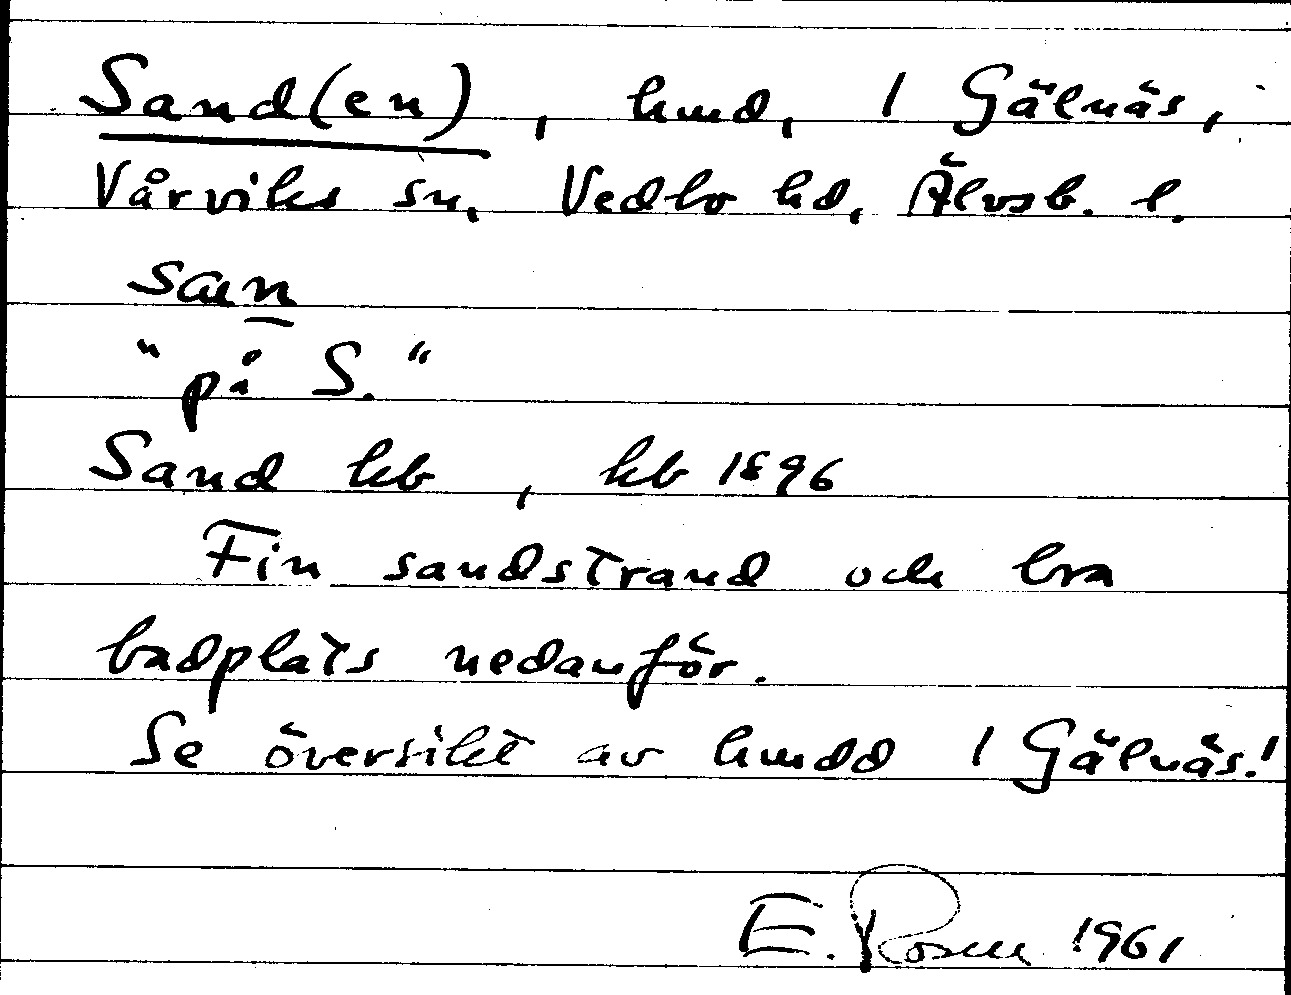 Sand(en), hmd, 1 Gälnäs,
Vårviks sn, Vedbo hd, Älvsb. l.
san
"på S."
Sand kb, kb 1896
Fin sandstrand och bra
badplats nedanför.
Se översikt av hmdd 1 Gälnäs!
E. Rosen 1961